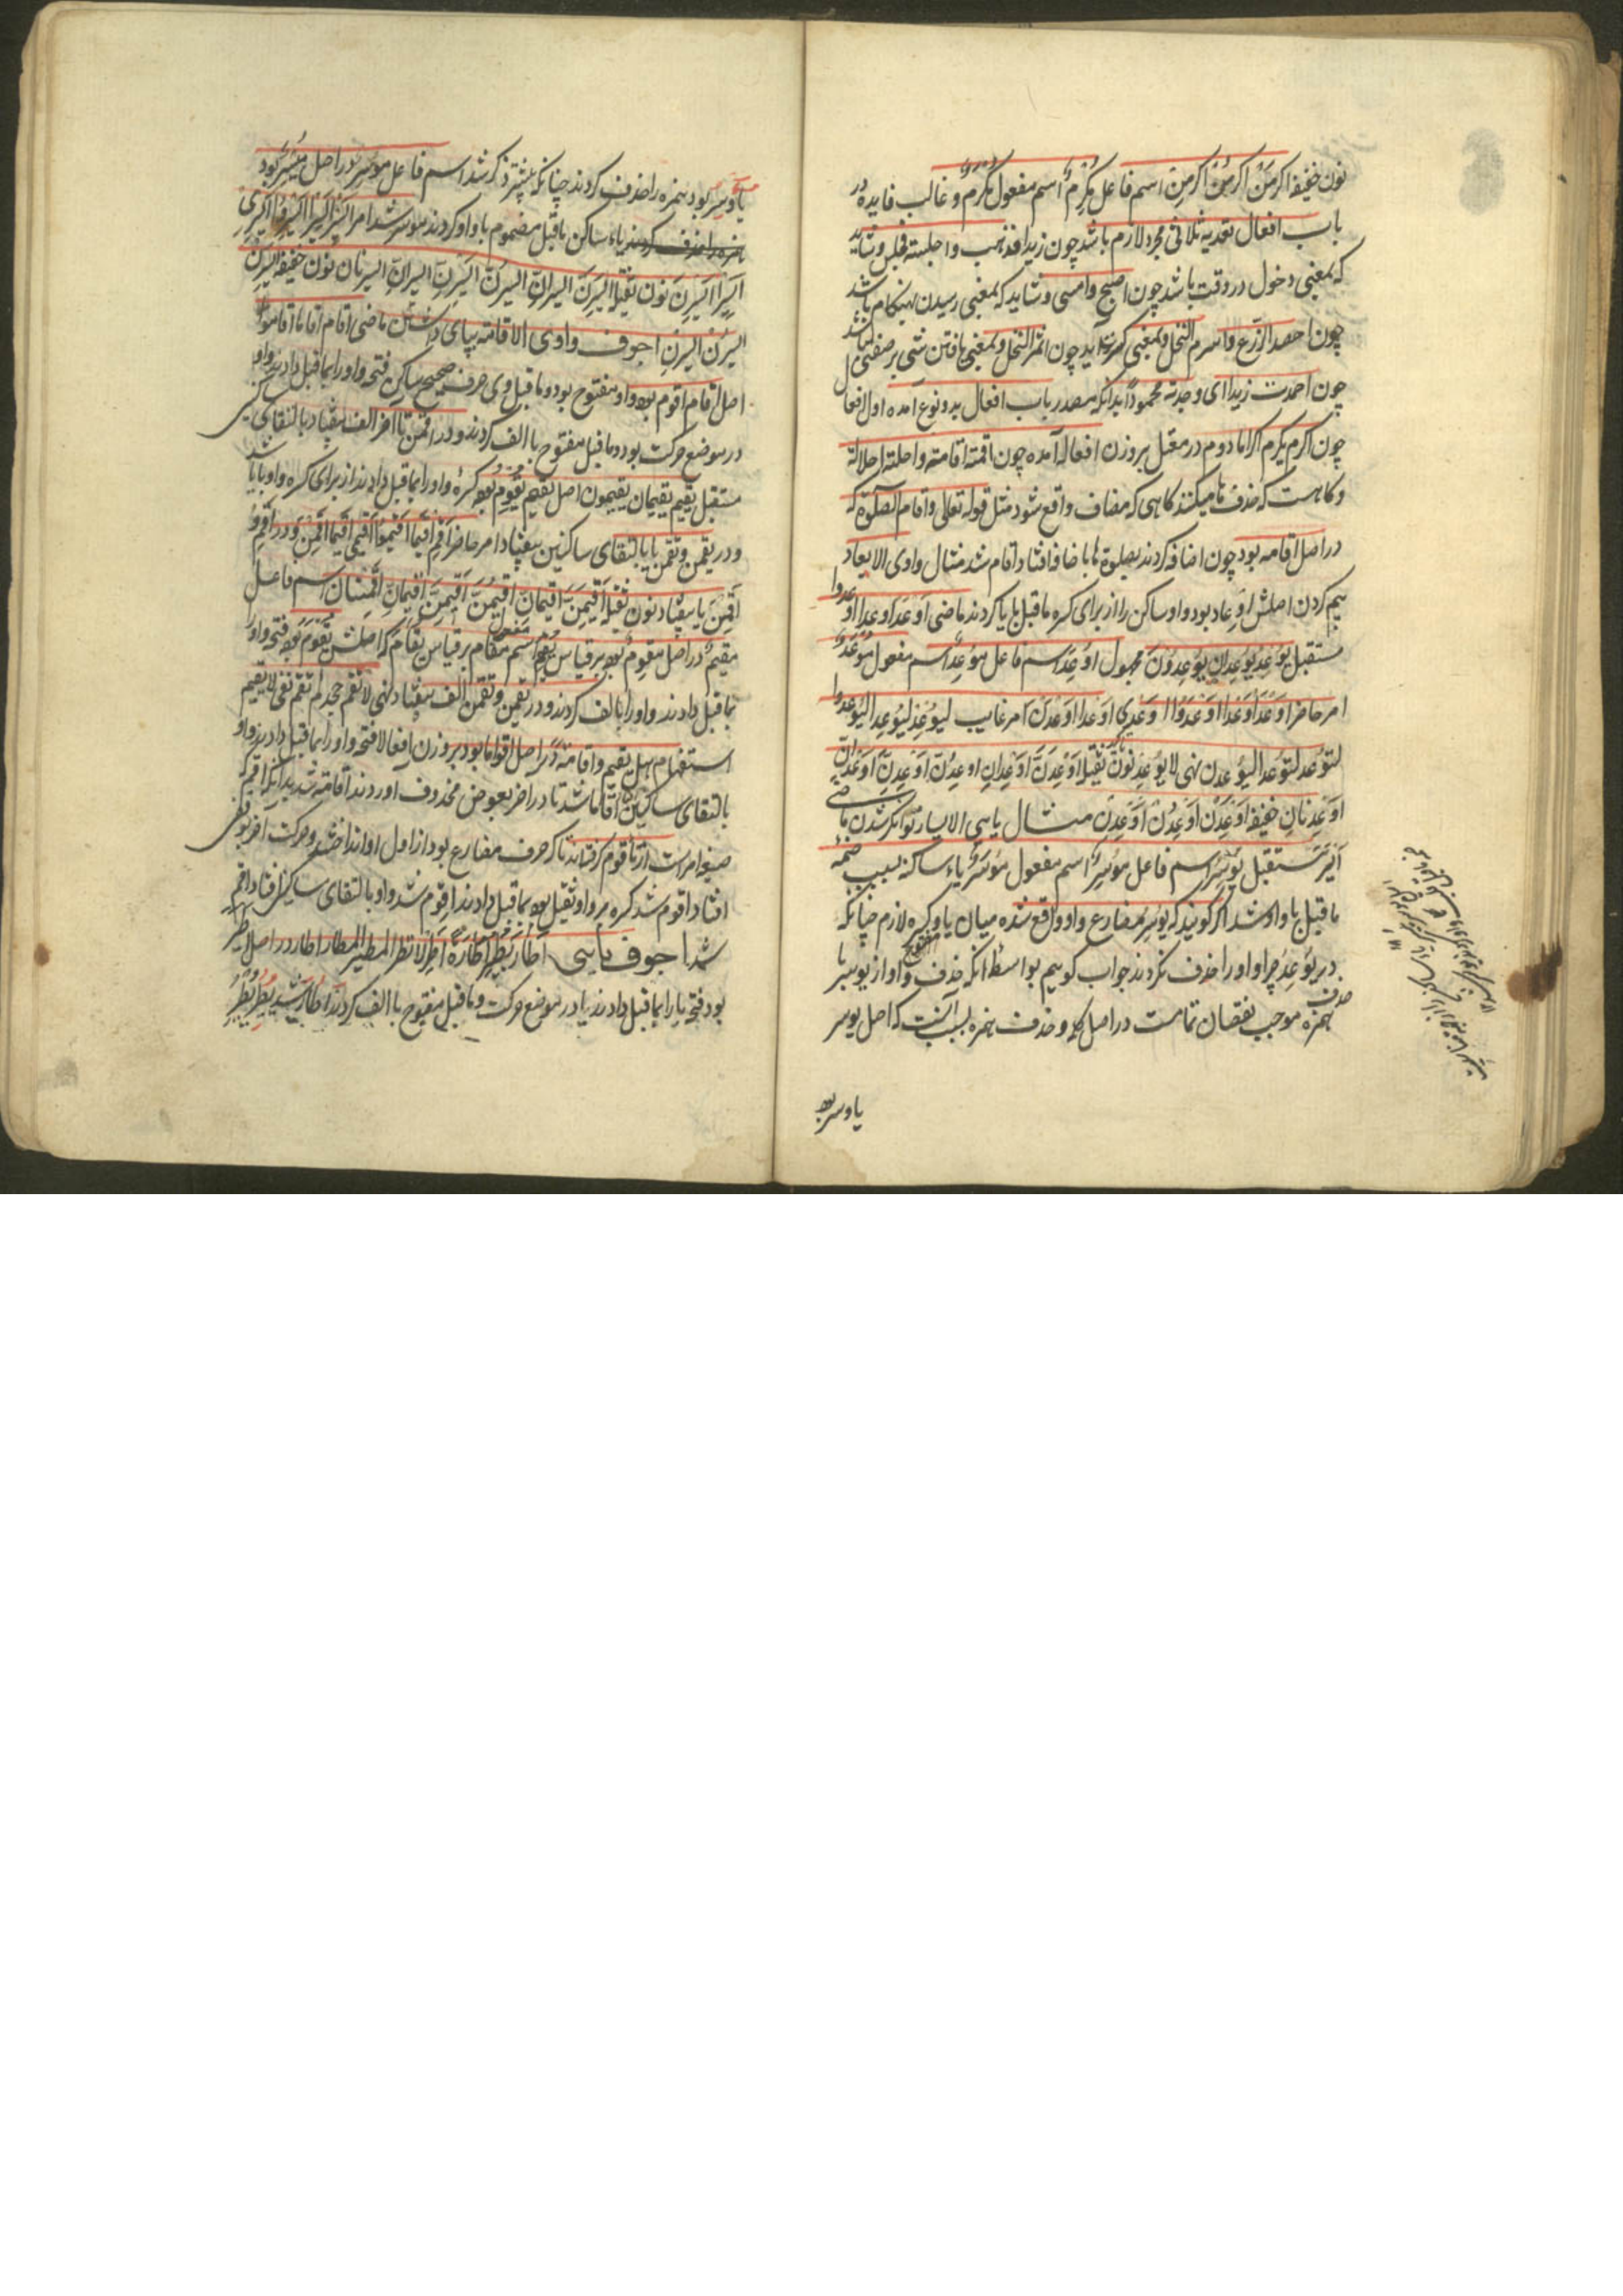 نون خفیفه اکرمَنْ اکرمُنْ اکرمِنْ اسم فاعل مُکرِمٌ اسم مفعول مُکرَمٌ و غالب فایده در
باب افعال تعدیه ثلاثی مجرد لازم باشد چون زیدا فذهب و اجلسته فجلس و شاید
که بمعنی دخول در وقت باشد چون اصبح و امسی و شاید که بمعنی رسیدن هنکام باشد
چون احصد الزرع و اصرم النخل و بمعنی کثرت آید چون اثمر النخل و بمعنی یافتن شیٔ بر صفتی باشد
چون احمدت زیدا ای وجدته محموداً بدانکه مصدر باب افعال بدو نوع آمده اول افعال
چون اکرم یکرم اکراما دوم در معتل بر وزن افعاله آمده چون اقمته اقامته و اجلته اجلالة
و کاهست که حذف تا میکنند کاهی که مضاف واقع شود مثل قوله تعالی و اقام الصلوة که
در اصل اقامه بود چون اضافه کردند بصلوة ها باضافه افتاد اقام شد مثال واوی الایعاد
بیم کردن اصلش اوعاد بود واو ساکن را از برای کسره ماقبل با یا کردند ماضی اَوْعَدَ اوعدا اوعدوا
مستقبل یُوعِدُ یُوعِدانِ یُوعِدُونَ مجهول اُوعِدَ اسم فاعل مُوعِدٌ اسم مفعول مُوعَدٌ
امر حاضر اَوْعِدْ اَوْعِدا اَوْعِدُوا اَوْعِدِی اَوْعِدا اَوْعِدْنَ امر غایب لیُوعِدْ لیُوعِدا لیُوعدوا
لتُوعد لتُوعدا لیُوعدن نهی لا یُوعِدْ نون ثقیله اَوْعِدَنَّ اَوْعِدانِّ اوعِدُنَّ اَوْعِدِنَّ اَوْعِدانِّ
اَوْعِدْنانِّ خفیفه اَوْعِدَنْ اَوْعِدُنْ اَوْعِدِنْ مثال یایی الایسار توانکر شدن ماضی
اَیْسَرَ مستقبل یُوسِرُ اسم فاعل مُوسِرٌ اسم مفعول مُوسَرٌ یاء ساکنه بسبب ضمهٔ
ماقبل با واو شد اکر کویند که یوسر مضارع واو واقع شده میان یا و کسره لازم چنانکه
در یُوعِدُ چرا واو را حذف نکردند جواب کوییم بواسطهٔ انکه حذف واو از یوسر با
حذف همزه موجب نقصان تمامست در اصل کلمه و حذف همزه بسبب آنست که اصل یوسر
یاوسر بود
یاوسر بود همزه را حذف کردند چنانکه پیشتر ذکر شد اسم فاعل موسر در اصل مُیْسِر بود
یاء ساکن ماقبل مضموم با واو کردند موسر شد امر ایسر ایسرا ایسروا ایسری
ایسرا ایسرن نون ثقیله ایسرنّ ایسرانّ ایسرنّ ایسرنّ ایسرانّ ایسرنانّ نون خفیفه ایسرن
ایسرُن ایسرِن اجوف واوی الاقامة بپای داشتن ماضی اقام اقاما اقاموا
اصل اقام اقوم بود واو مفتوح بود و ماقبل وی حرف صحیح ساکن فتحهٔ واو را بماقبل دادند واو
در موضع حرکت بود و ماقبل مفتوح با الف کردند و در اقمن تا آخر الف بیفتاد بالتقای ساکنین
مستقبل یقیم یقیمان یقیمون اصل یقیم یُقْوِمُ بود کسرهٔ واو را بماقبل دادند از برای کسره واو با یا شد
و در یقمن و تقمن یا بالتقای ساکنین بیفتاد امر حاضر اقم اقیما اقیموا اقیمی اقیما اقمن و در اقم و
اقمن یا بیفتاد نون ثقیله اقیمنّ اقیمانّ اقیمُنّ اقیمِنّ اقیمانّ اقمنانّ اسم فاعل
مقیم در اصل مقوم بود بر قیاس یقوم اسم مفعول مقام بر قیاس یقام که اصلش یُقْوَمُ بود فتحهٔ واو را
بماقبل دادند واو را با الف کردند و در یقمن و تقمن الف بیفتاد نهی لا تقم جحد لم تقم نفی لا یقیم
استفهام هل یقیم و اقامة در اصل اقواما بود بر وزن افعالا فتحهٔ واو را بماقبل دادند واو
بالتقای ساکنین اقاما شد تا در آخر بعوض محذوف آوردند اقامة شد بدانکه اقم که
صیغهٔ امرست از تأقوم کرفتند تا که حرف مضارع بود از اول او انداختند و حرکت آخر بوقفی
افتاد اقوم شد کسره بر واو ثقیل بود بماقبل دادند اقوم شد واو بالتقای ساکنین افتاد اقم
شد اجوف یایی اطار یطیر اطارة اطر لا تطر المطیر المطار اطار در اصل اطیر
بود فتحهٔ یا را بماقبل دادند یا در موضع حرکت و ماقبل مفتوح با الف کردند اطار شد یطیر یطیر